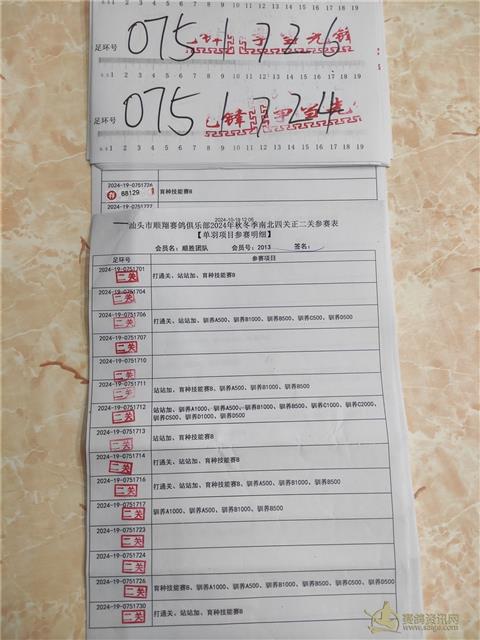 1 2 3 4 5 6 7 8 9 10 11 12 13 14 15 16 17 18 19
足环号 0751726
足环号 0751724
2024-19-0751726
88129 1 育种技能赛B
2024-19-0751727
2024-10-19 12:06
汕头市顺翔赛鸽俱乐部2024年秋冬季南北四关正二关参赛表
【单羽项目参赛明细】
会员名: 顺胜团队 会员号: 2013 签名:
足环号 参赛项目
2024-19-0751701
二关 打通关、站站加、育种技能赛B
2024-19-0751704
二关
2024-19-0751706
二关 打通关、站站加、驯养A500、驯养B1000、驯养B500、驯养C500、驯养D500
2024-19-0751707
二关
2024-19-0751710
二关
2024-19-0751711
二关 站站加、育种技能赛B、驯养A500、驯养B1000、驯养B500
2024-19-0751712
二关 站站加、驯养A1000、驯养A500、驯养B1000、驯养B500、驯养C1000、驯养C2000、
驯养C500、驯养D1000、驯养D500
2024-19-0751713
二关 站站加、育种技能赛B
2024-19-0751714
二关 打通关、站站加、育种技能赛B
2024-19-0751716
二关 打通关、站站加、育种技能赛B、驯养A500、驯养B1000、驯养B500
2024-19-0751717
二关 驯养A1000、驯养A500、驯养B1000、驯养B500
2024-19-0751723
二关
2024-19-0751724
二关
2024-19-0751726
二关 育种技能赛B、驯养A1000、驯养A500、驯养B1000、驯养B500、驯养C500、驯养D500
2024-19-0751730
二关 打通关、站站加、育种技能赛B
赛鸽资讯网
www.saige.com